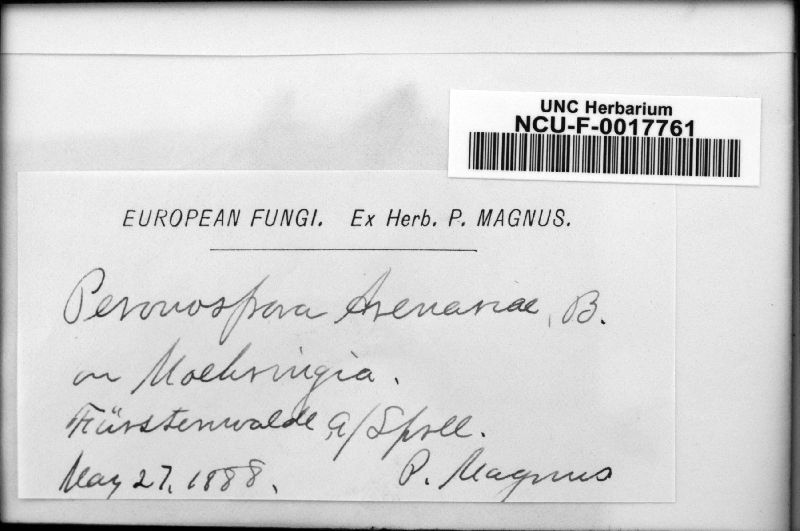 UNC Herbarium
NCU-F-0017761
EUROPEAN FUNGI. Ex Herb. P. MAGNUS.
Peronospora Arenariae, B.
on Moehringia.
Fürstenwalde a/Spree.
May 27, 1888.
P. Magnus